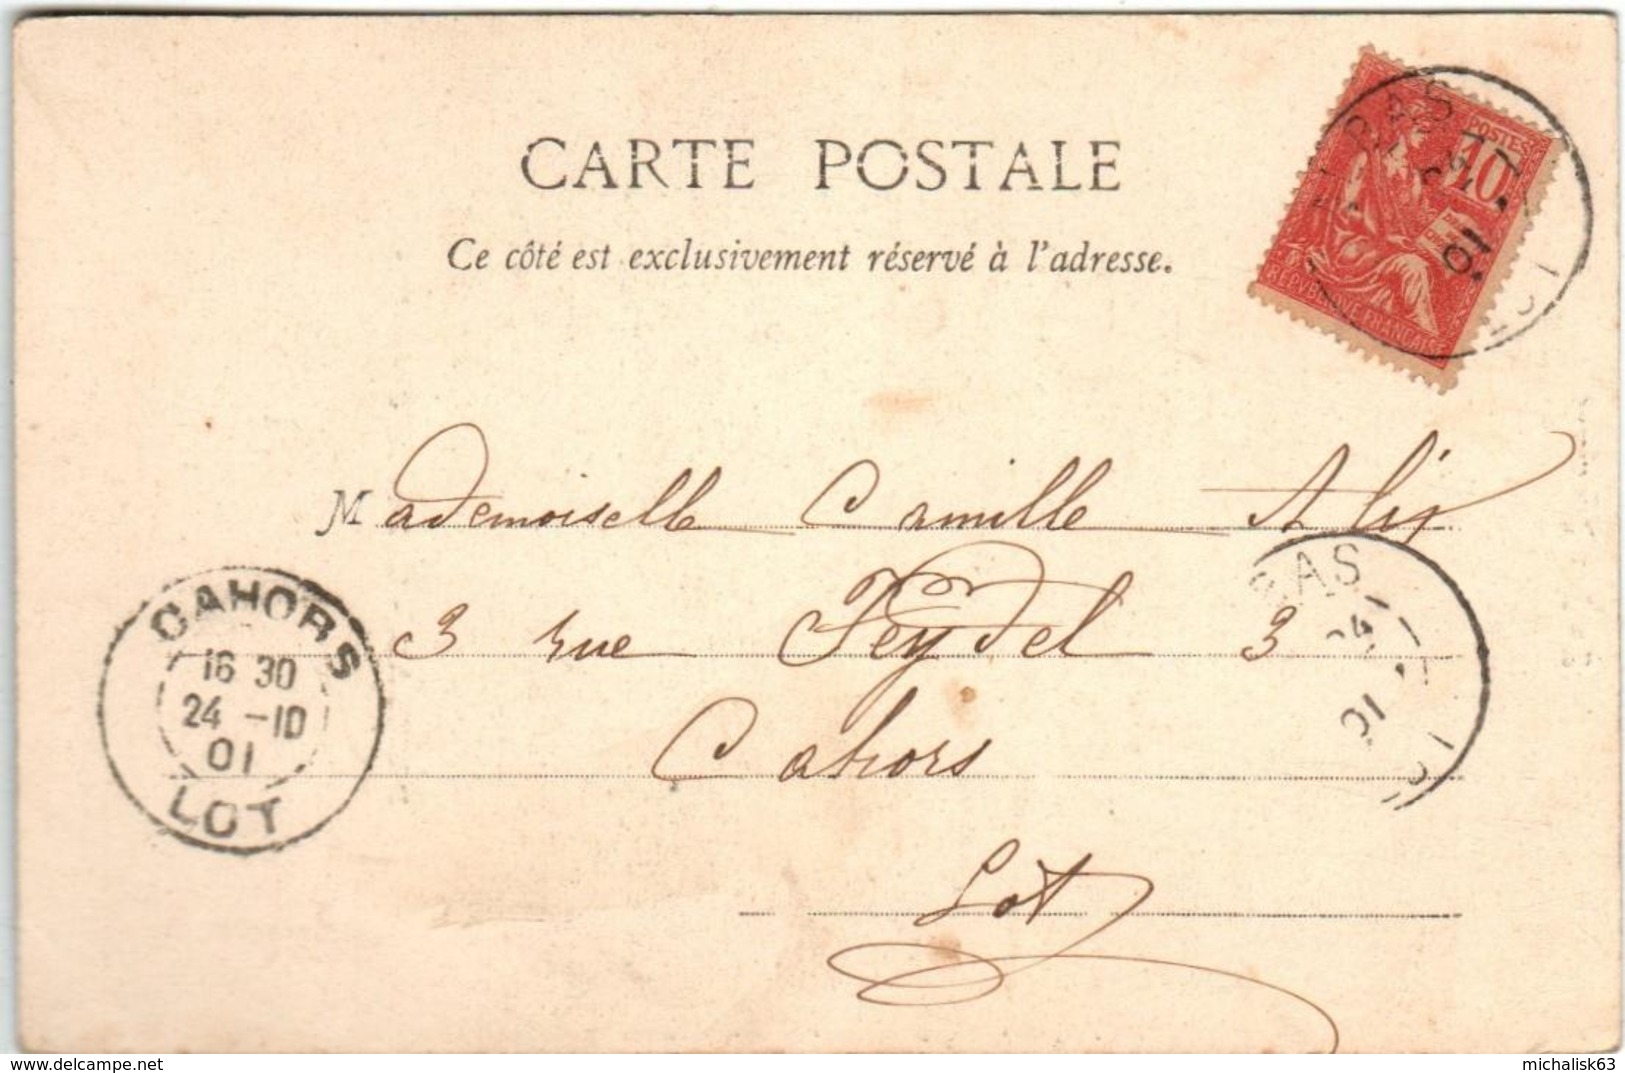 CARTE POSTALE
Ce côté est exclusivement réservé à l'adresse.
POSTES
10
REPVBLIQVE FRANÇAISE
BAS
24
01
LOT
Mademoiselle Camille Alix
3 rue Feydel 3
Cahors
Lot
BAS
24
01
CAHORS
16 30
24 -10
01
LOT
delcampe.net
michalisk63